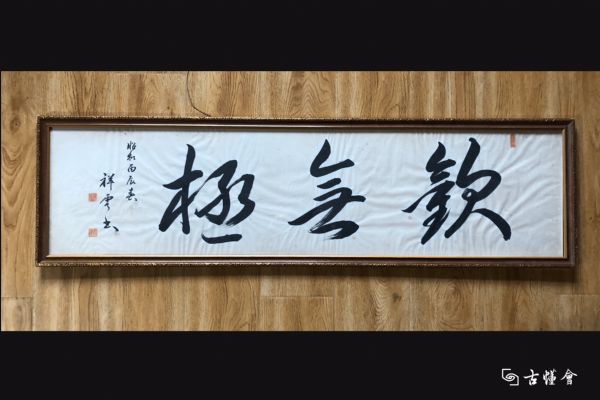 歓無極
昭和丙辰春
祥雲書
古懂會